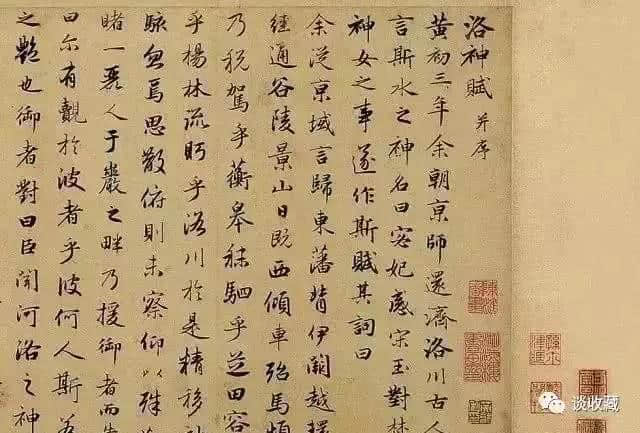 洛神賦 并序
黄初三年余朝京師還濟洛川古人
言斯水之神名曰宓妃感宋玉對楚
神女之事遂作斯賦其詞曰
余從京域言歸東藩背伊闕越轘
經通谷陵景山日既西傾車殆馬煩
乃税駕乎蘅皋秣駟乎芝田容
乎楊林流眄乎洛川於是精移神
駭忽焉思散俯則未察仰以殊
睹一麗人于巖之畔乃援御者而告
曰尔有覿於彼者乎彼何人斯若
之艷也御者對曰臣聞河洛之神
谈收藏